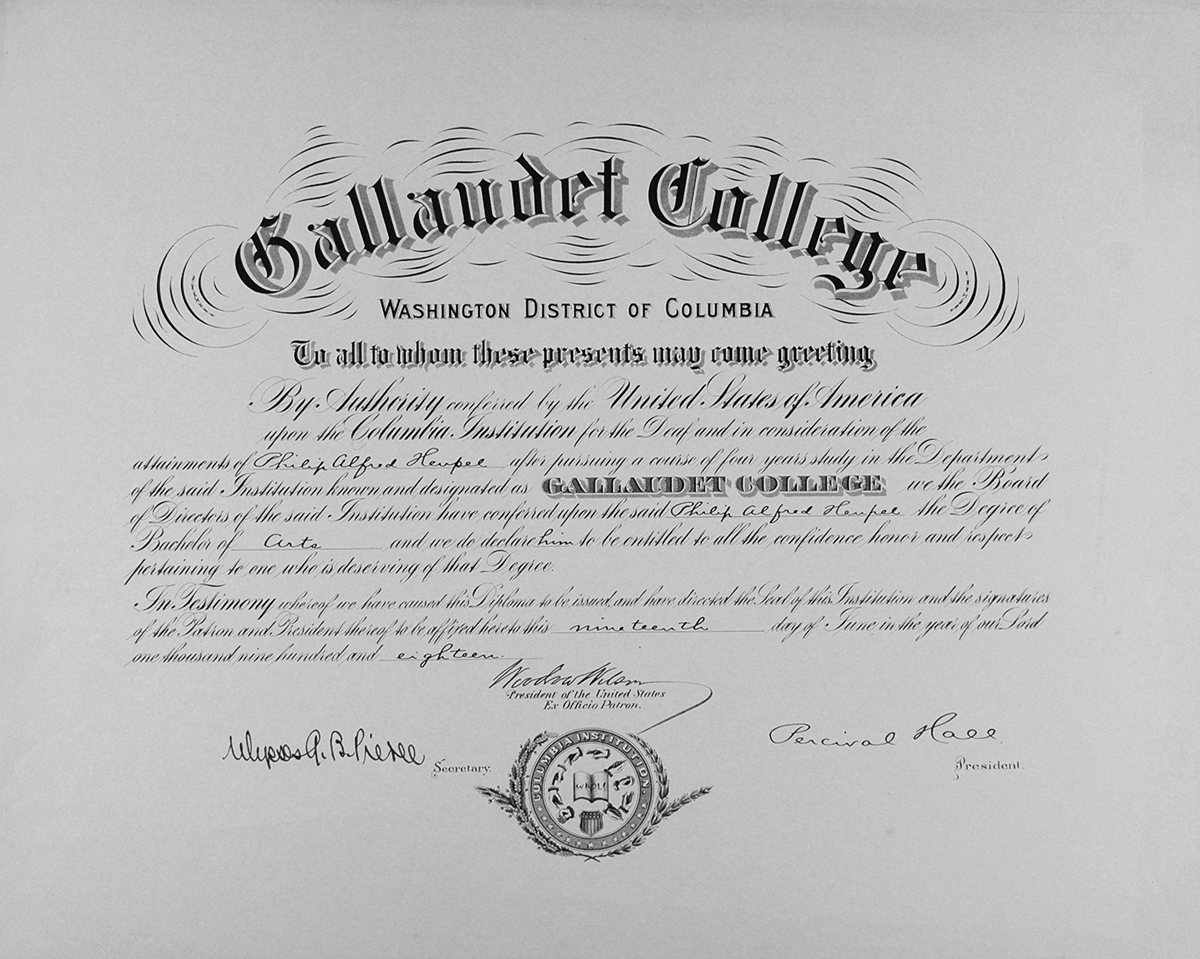 Gallaudet College
Washington District of Columbia
To all to whom these presents may come greeting
By Authority conferred by the United States of America
upon the Columbia Institution for the Deaf and in consideration of the
attainments of Philip Alfred Heupel after pursuing a course of four years study in the Department
of the said Institution known and designated as GALLAUDET COLLEGE we the Board
of Directors of the said Institution have conferred upon the said Philip Alfred Heupel the Degree of
Bachelor of Arts and we do declare him to be entitled to all the confidence, honor and respect
pertaining to one, who is deserving of that Degree.
In Testimony whereof we have caused this Diploma to be issued, and have directed the Seal of this Institution and the signatures
of the Patron and President thereof to be affixed hereto this nineteenth day of June in the year of our Lord
one thousand nine hundred and eighteen.
Woodrow Wilson
President of the United States
Ex Officio Patron.
Ulysses G. B. Pierce Secretary.
Percival Hall
President.
COLUMBIA INSTITUTION